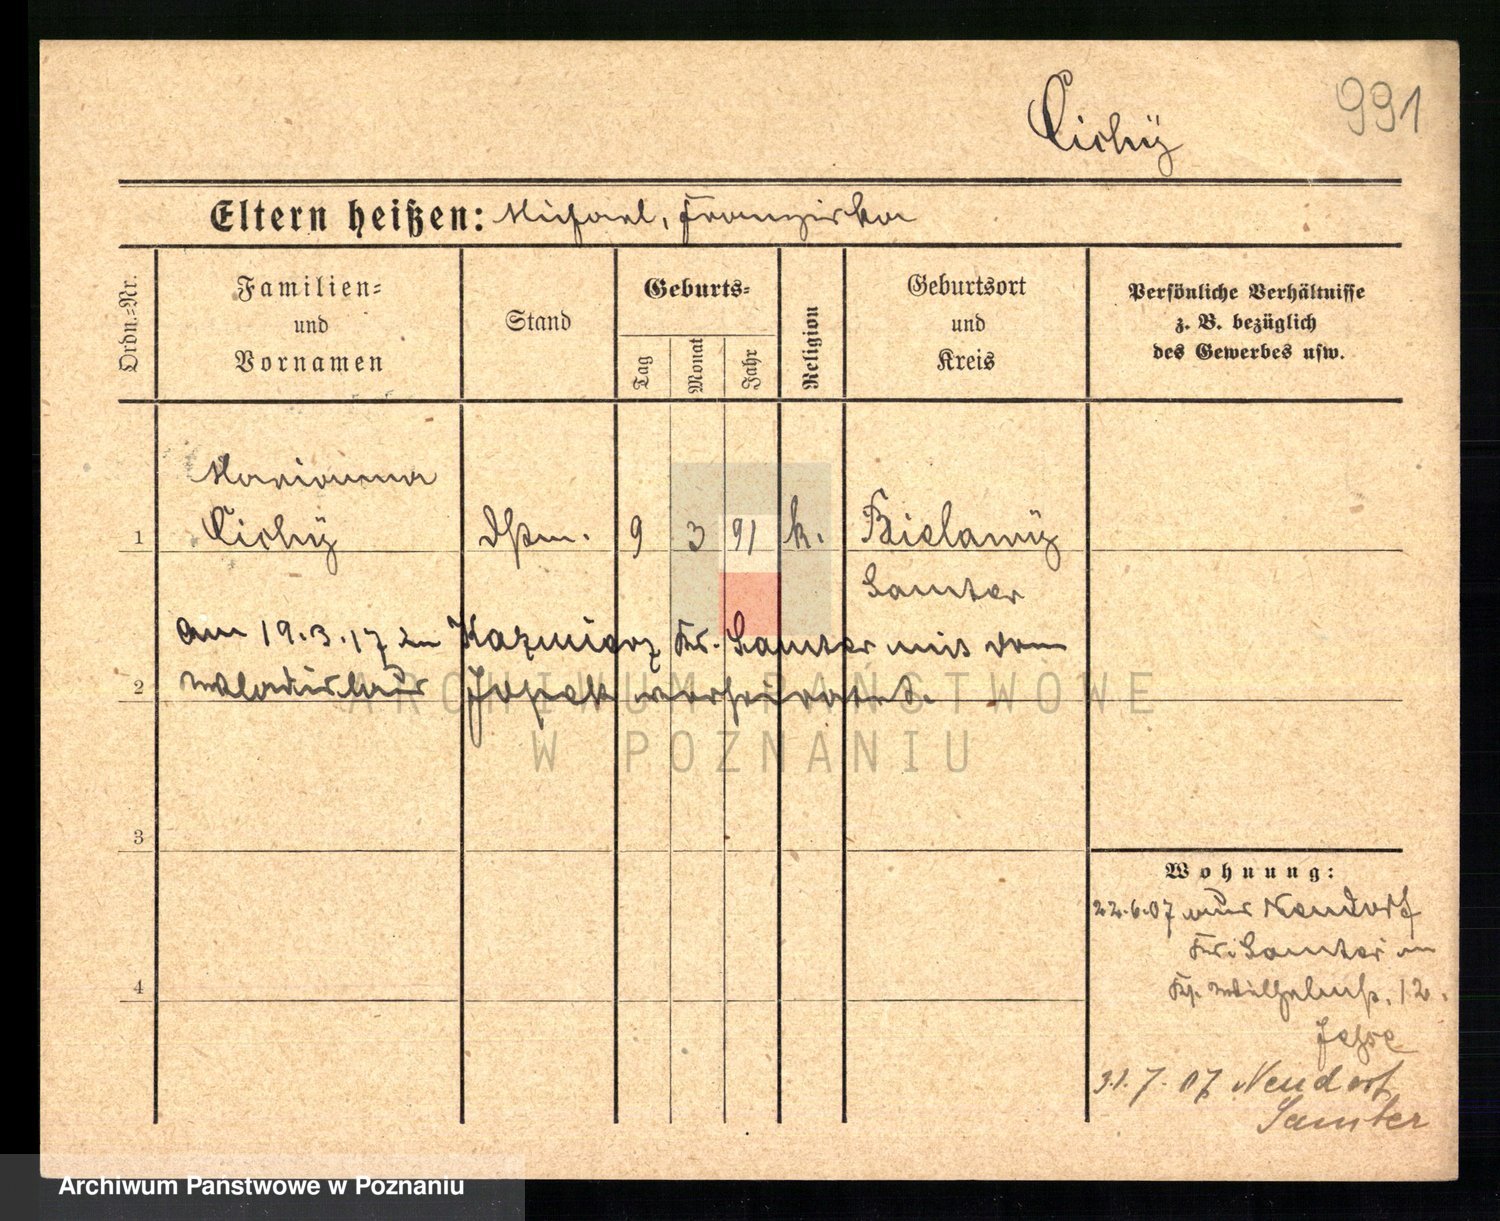 991
Cichÿ
Eltern heißen: Michael, Franziska
Ordn.=Nr.
Familien=
und
Vornamen
Stand
Geburts=
Tag
Monat
Jahr
Religion
Geburtsort
und
Kreis
Persönliche Verhältnisse
z. B. bezüglich
des Gewerbes usw.
Marianna
1 Cichÿ Dßm. 9 3 91 k. Bielawÿ
Samter
am 19.3.17 in Kazmierz Kr. Samter mit dem
2 Wladislaus Josek verheiratet.
ARCHIWUM PAŃSTWOWE
W POZNANIU
3
Wohnung:
22.6.07 aus Neudorf
Kr. Samter
4
Wilhelmst. 12.
31.7.07 Neudorf
Samter
Archiwum Państwowe w Poznaniu